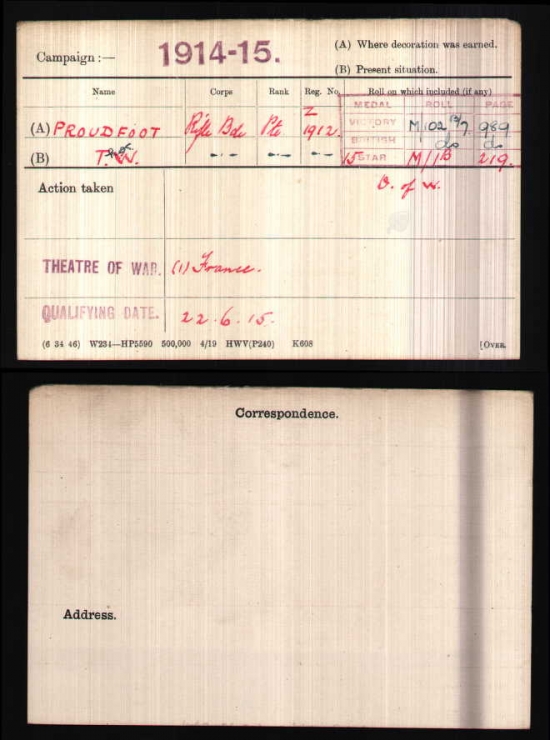 Campaign :— 1914-15. (A) Where decoration was earned.
(B) Present situation.
Name Corps Rank Reg. No. Roll on which included (if any)
MEDAL ROLL PAGE
(A) PROUDFOOT Rifle Bde Pte Z 1912. VICTORY M 102 B7 989
BRITISH do do
(B) T. W. —"— —"— 15 STAR M/1B 219.
Action taken D. of W.
THEATRE OF WAR. (1) France.
QUALIFYING DATE. 22.6.15.
(6 34 46) W234—HP5590 500,000 4/19 HWV(P240) K608 [OVER.
Correspondence.
Address.